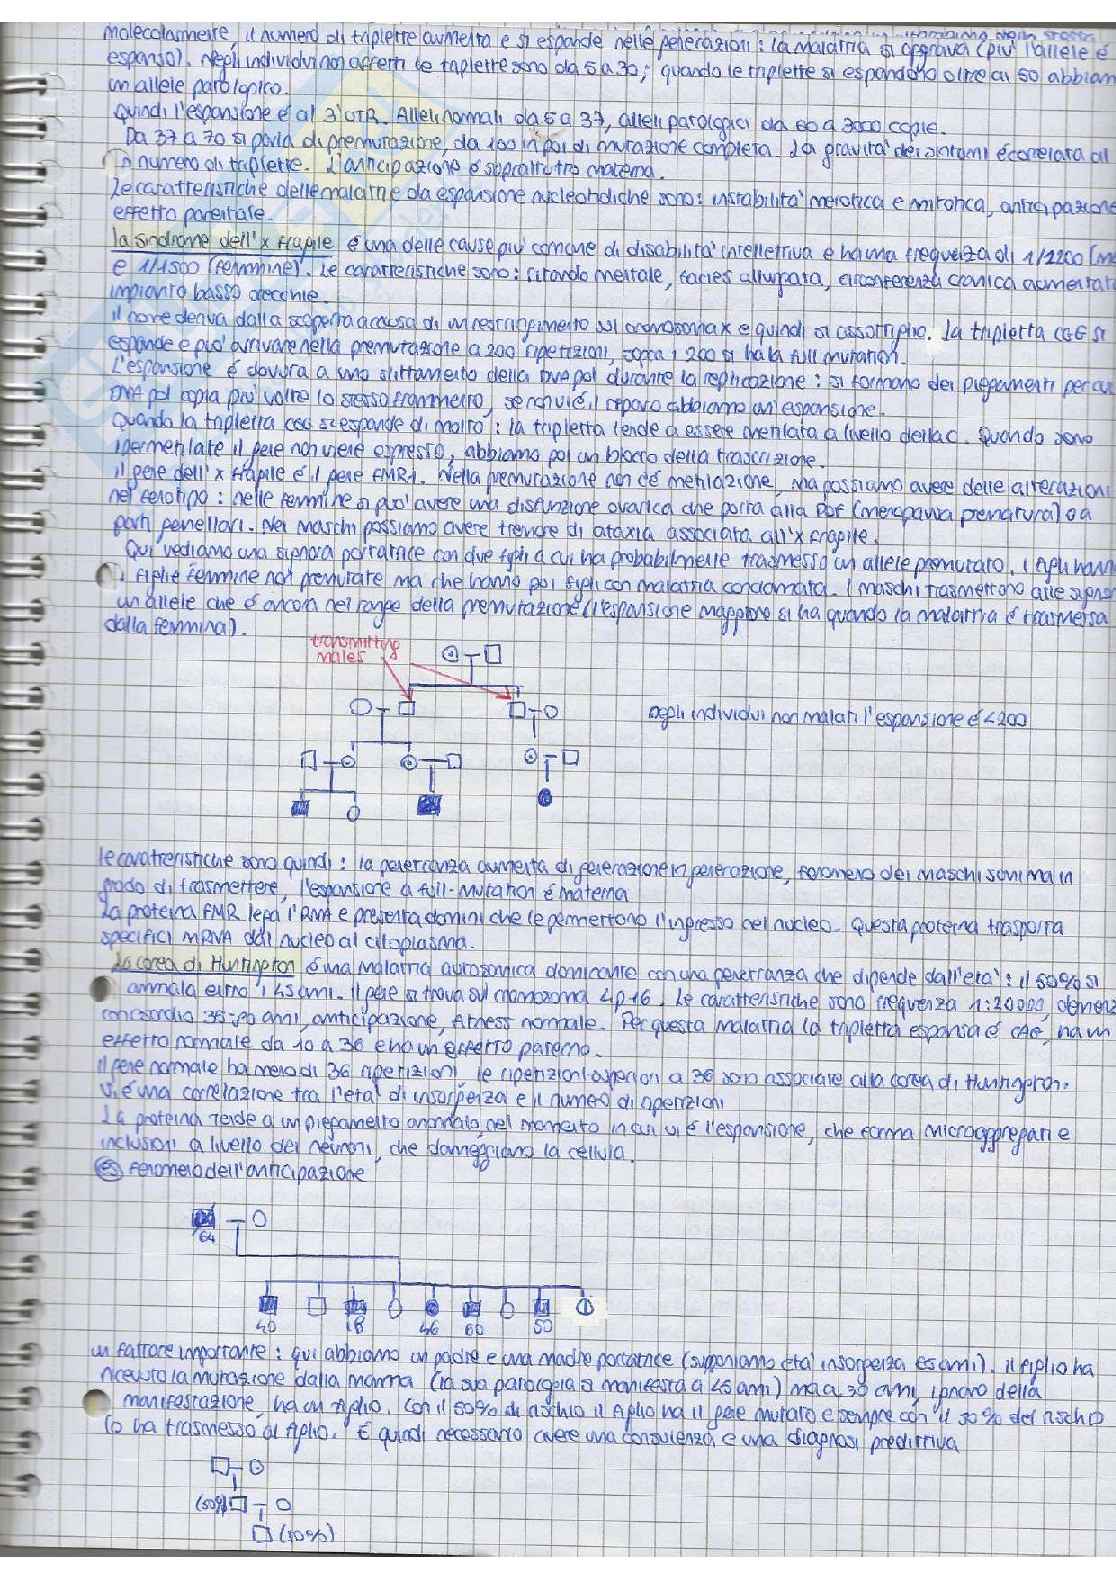 molecolarmente, il numero di triplette aumenta e si espande nelle generazioni: la malattia si aggrava (più l'allele è
espanso). Negli individui non affetti le triplette sono da 5 a 30; quando le triplette si espandono oltre ai 50 abbiam
un allele patologico.
Quindi l'espansione è al 3'UTR. Alleli normali da 5 a 37, alleli patologici da 50 a 3000 copie.
Da 37 a 70 si parla di premutazione, da 100 in poi di mutazione completa. La gravità dei sintomi è correlata al
numero di triplette. L'anticipazione è soprattutto materna.
Le caratteristiche delle malattie da espansione nucleotidiche sono: instabilità meiotica e mitotica, anticipazione
effetto parentale.
la sindrome dell'x fragile è una delle cause più comune di disabilità intellettiva e ha una frequenza di 1/2200 (ma
e 1/1500 (femmine). Le caratteristiche sono: ritardo mentale, facies allungata, circonferenza cranica aumentata
impianto basso orecchie.
il nome deriva dalla scoperta a causa di un restringimento sul cromosoma x e quindi si assottiglia. La tripletta CGG si
espande e può arrivare nella premutazione a 200 ripetizioni, sopra i 200 si ha la full mutation.
L'espansione è dovuta a uno slittamento della DNA pol durante la replicazione: si formano dei piegamenti per cui
DNA pol copia più volte lo stesso frammento, se non vi è il riparo abbiamo un'espansione.
Quando la tripletta CGG si espande di molto: la tripletta tende a essere metilata a livello della C. Quando sono
ipermetilate il gene non viene espresso, abbiamo poi un blocco della trascrizione.
il gene dell'x fragile è il gene FMR1. Nella premutazione non c'è metilazione, ma possiamo avere delle alterazioni
nel fenotipo: nelle femmine si può avere una disfunzione ovarica che porta alla POF (menopausa prematura) o a
parti gemellari. Nei maschi possiamo avere tremore di ataxia associata all'x fragile.
Qui vediamo una signora portatrice con due figli a cui ha probabilmente trasmesso un allele premutato. I figli hann
figlie femmine non premutate ma che hanno poi figli con malattia conclamata. I maschi trasmettono alle
un allele che è ancora nel range della premutazione (l'espansione maggiore si ha quando la malattia è trasmessa
dalla femmina).
transmitting
males
Negli individui non malati l'espansione è <200
le caratteristiche sono quindi: la penetranza aumenta di generazione in generazione, fenomeno dei maschi sani ma in
grado di trasmettere, l'espansione a full-mutation è materna
La proteina FMR lega l'RNA e presenta domini che le permettono l'ingresso nel nucleo. Questa proteina trasporta
specifici mRNA dal nucleo al citoplasma.
La corea di Huntington è una malattia autosomica dominante con una penetranza che dipende dall'età: il 50% si
ammala entro i 45 anni. Il gene si trova sul cromosoma 4p16. Le caratteristiche sono frequenza 1:20000, demenz
anni, anticipazione, fitness normale. Per questa malattia la tripletta espansa è CAG, ha un
effetto normale da 10 a 36 e ha un effetto paterno.
il gene normale ha meno di 36 ripetizioni, le ripetizioni superiori a 36 sono associate alla corea di Huntington.
Vi è una correlazione tra l'età di insorgenza e il numero di ripetizioni
La proteina tende a un piegamento anomalo, nel momento in cui vi è l'espansione, che forma microaggregati e
inclusioni a livello dei neuroni, che danneggiano la cellula.
es fenomeno dell'anticipazione
64
40 18 46 60 50
un fattore importante: qui abbiamo un padre e una madre portatrice (supponiamo età insorgenza 65 anni). il figlio ha
ricevuto la mutazione dalla mamma (la sua patologia si manifesta a 45 anni) ma a 30 anni, ignaro della
manifestazione, ha un figlio. Con il 50% di rischio il figlio ha il gene mutato e sempre con il 50% del rischio
lo ha trasmesso al figlio. È quindi necessario avere una consulenza e una diagnosi predittiva
(50%)